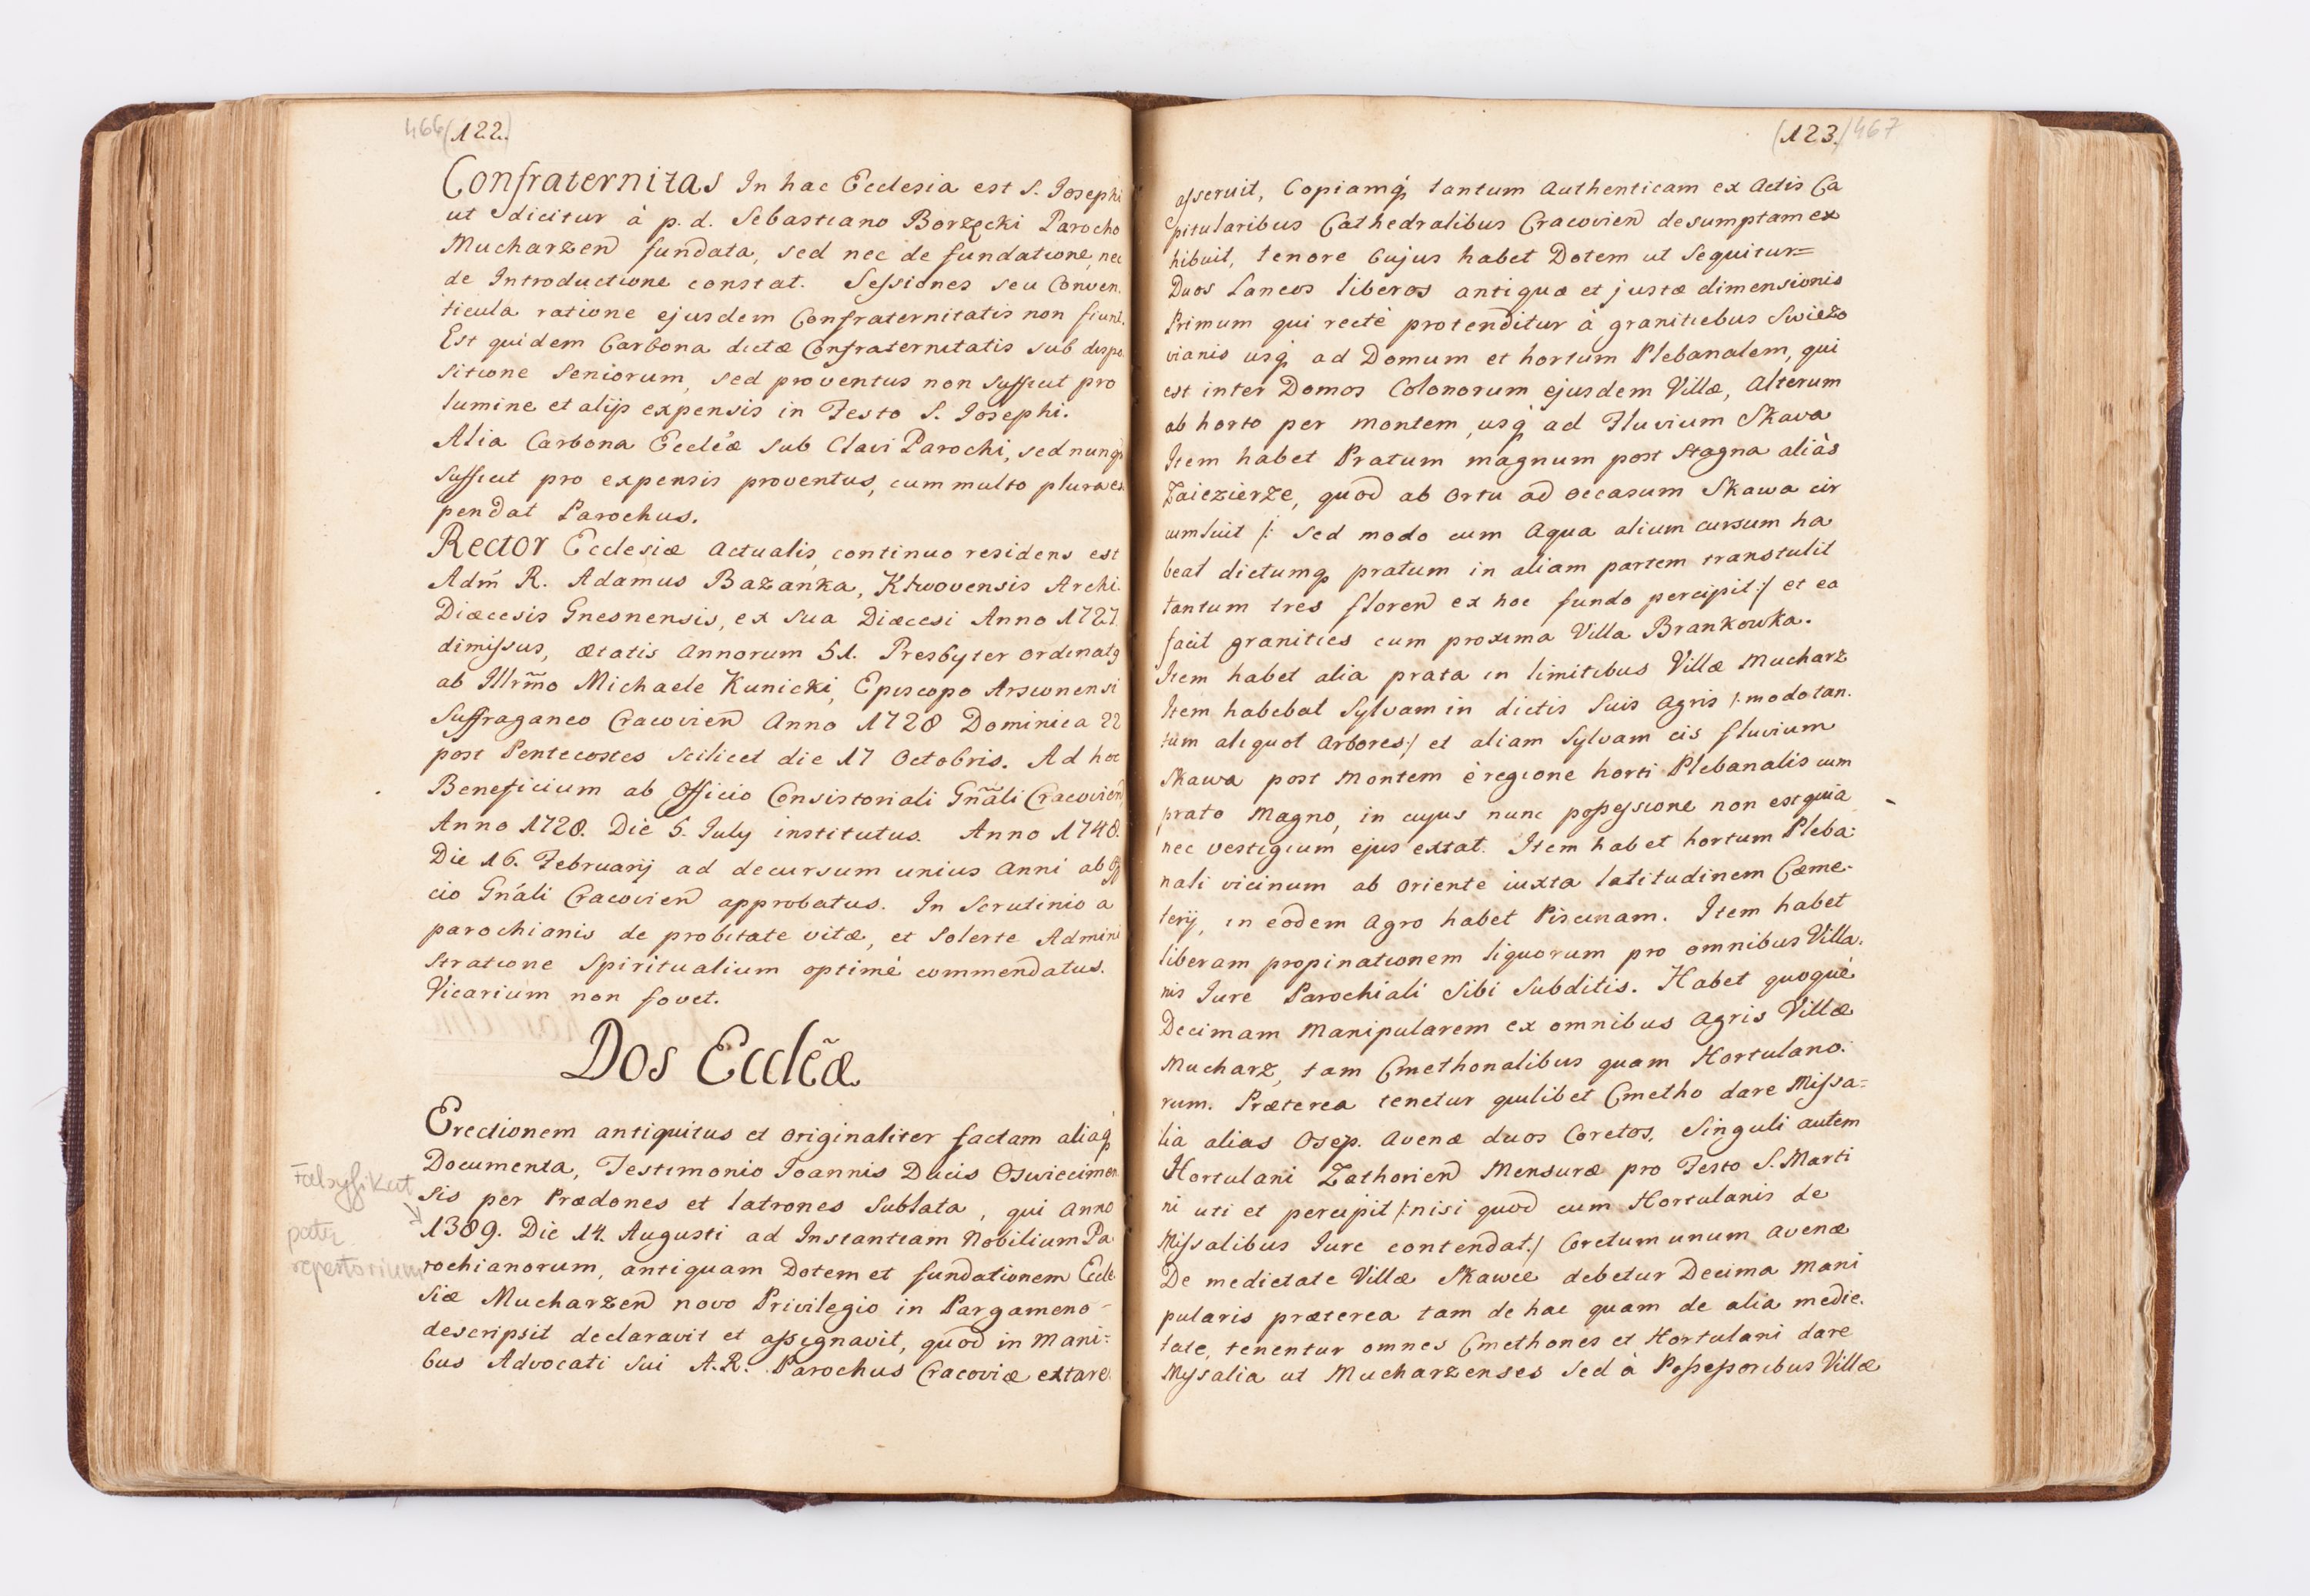 466 (122.)
Confraternitas In hac Ecclesia est S. Josephi
ut dicitur à p. d. Sebastiano Borzęcki Parocho
Mucharzen fundata, sed nec de fundatione, nec
de Introductione constat. Sessiones seu Conven
ticula ratione ejusdem Confraternitatis non fiunt.
Est quidem Carbona dictæ Confraternitatis sub dispo
sitione Seniorum, sed proventus non sufficit pro
lumine et alijs expensis in Festo S. Josephi.
Alia Carbona Eccl̃æ sub Clavi Parochi, sed nunq̃
sufficit pro expensis proventus, cum multo plura ex
pendat Parochus.
Rector Ecclesiæ Actualis, continuo residens est
Adm̃ R. Adamus Bazanka, Ktwovensis Archi
Diæcesis Gnesnensis, ex sua Diæcesi Anno 1727
dimissus, ætatis Annorum 51. Presbyter ordinatq
ab Illrm̃o Michaele Kunicki, Episcopo Arsionensi
Suffraganeo Cracovien Anno 1728 Dominica 22
post Pentecostes scilicet die 17 Octobris. Ad hoc
Beneficium ab Officio Consistoriali Gñali Cracovien
Anno 1728. Die 5. July institutus. Anno 1748.
Die 16. Februarij ad decursum unius Anni ab Off
cio Gñali Cracovien approbatus. In Scrutinio a
parochianis de probitate vitæ, et solerte Admini
stratione Spiritualium optimè commendatus.
Vicarium non fovet.
Dos Eccl̃æ
Erectionem antiquitus et originaliter factam aliaq́
Documenta, Testimonio Joannis Ducis Oswiecimen
sis per Prædones et latrones sublata, qui Anno
1389. Die 14. Augusti ad Instantiam Nobilium Pa
rochianorum, antiquam Dotem et fundationem Eccle
siæ Mucharzen novo Privilegio in Pargameno
descripsit declaravit et assignavit, quod in mani=
bus Advocati sui A.R. Parochus Cracoviæ extare
Falsyfikat
patrz
repertorium
(123.) 467
asseruit, Copiamq́ tantum Authenticam ex Actis Ca
pitularibus Cathedralibus Cracovien desumptam ex
hibuit, tenore cujus habet Dotem ut sequitur=
Duos Laneos liberos antiquæ et justæ dimensionis
Primum qui rectè protenditur à granitiebus Swiezo
vianis usq́ ad Domum et hortum Plebanalem, qui
est inter Domos Colonorum ejusdem Villæ, Alterum
ab horto per montem, usq́ ad Fluvium Skava
Item habet Pratum magnum post Stagna aliàs
Zaiezierze, quod ab ortu ad occasum Skawa cir
cumluit /: sed modo cum Aqua alium cursum ha
beat dictumq́ pratum in aliam partem transtulit
tantum tres floren ex hoc fundo percipit :/ et ea
facit granities cum proxima Villa Brankowka.
Item habet alia prata in limitibus Villæ Mucharz
Item habebat Sylvam in dictis suis Agris /: modo tan.
tum aliquot Arbores :/ et aliam Sylvam cis fluvium
Skawa post Montem è regione horti Plebanalis cum
prato Magno, in cujus nunc possessione non est quia
nec vestigium ejus extat. Item habet hortum Pleba=
nali vicinum ab oriente iuxta latitudinem Cæme=
terij, in eodem Agro habet Piscinam. Item habet
liberam propinationem liquorum pro omnibus Villa.
nis Jure Parochiali sibi subditis. Habet quoquè
Decimam Manipularem ex omnibus Agris Villæ
Mucharz, tam Cmethonalibus quam Hortulano.
rum. Præterea tenetur quilibet Cmetho dare Missa=
lia alias Osep. Avenæ duos Coretos, Singuli autem
Hortulani Zathorien Mensuræ pro Festo S. Marti
ni uti et percipit /: nisi quod cum Hortulanis de
Missalibus Jure contendat :/ Coretum unum Avenæ
De medietate Villæ Skawce debetur Decima Mani
pularis præterea tam de hac quam de alia medie.
tate, tenentur omnes Cmethones et Hortulani dare
Missalia ut Mucharzenses sed à Possessoribus Villæ